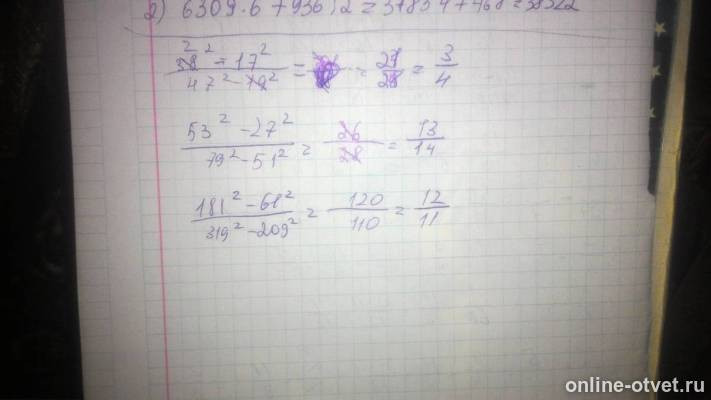 2) 6309·6+936:2=37854+468=38322
38² - 17² / 47² - 19² = 21 / 28 = 3 / 4
53² - 27² / 79² - 51² = 26 / 28 = 13 / 14
181² - 61² / 319² - 209² = 120 / 110 = 12 / 11
online-otvet.ru